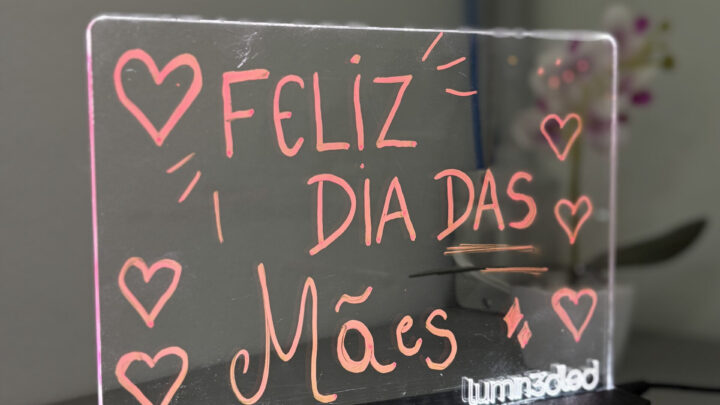 FELIZ
DIA DAS
Mães
lumin3dled